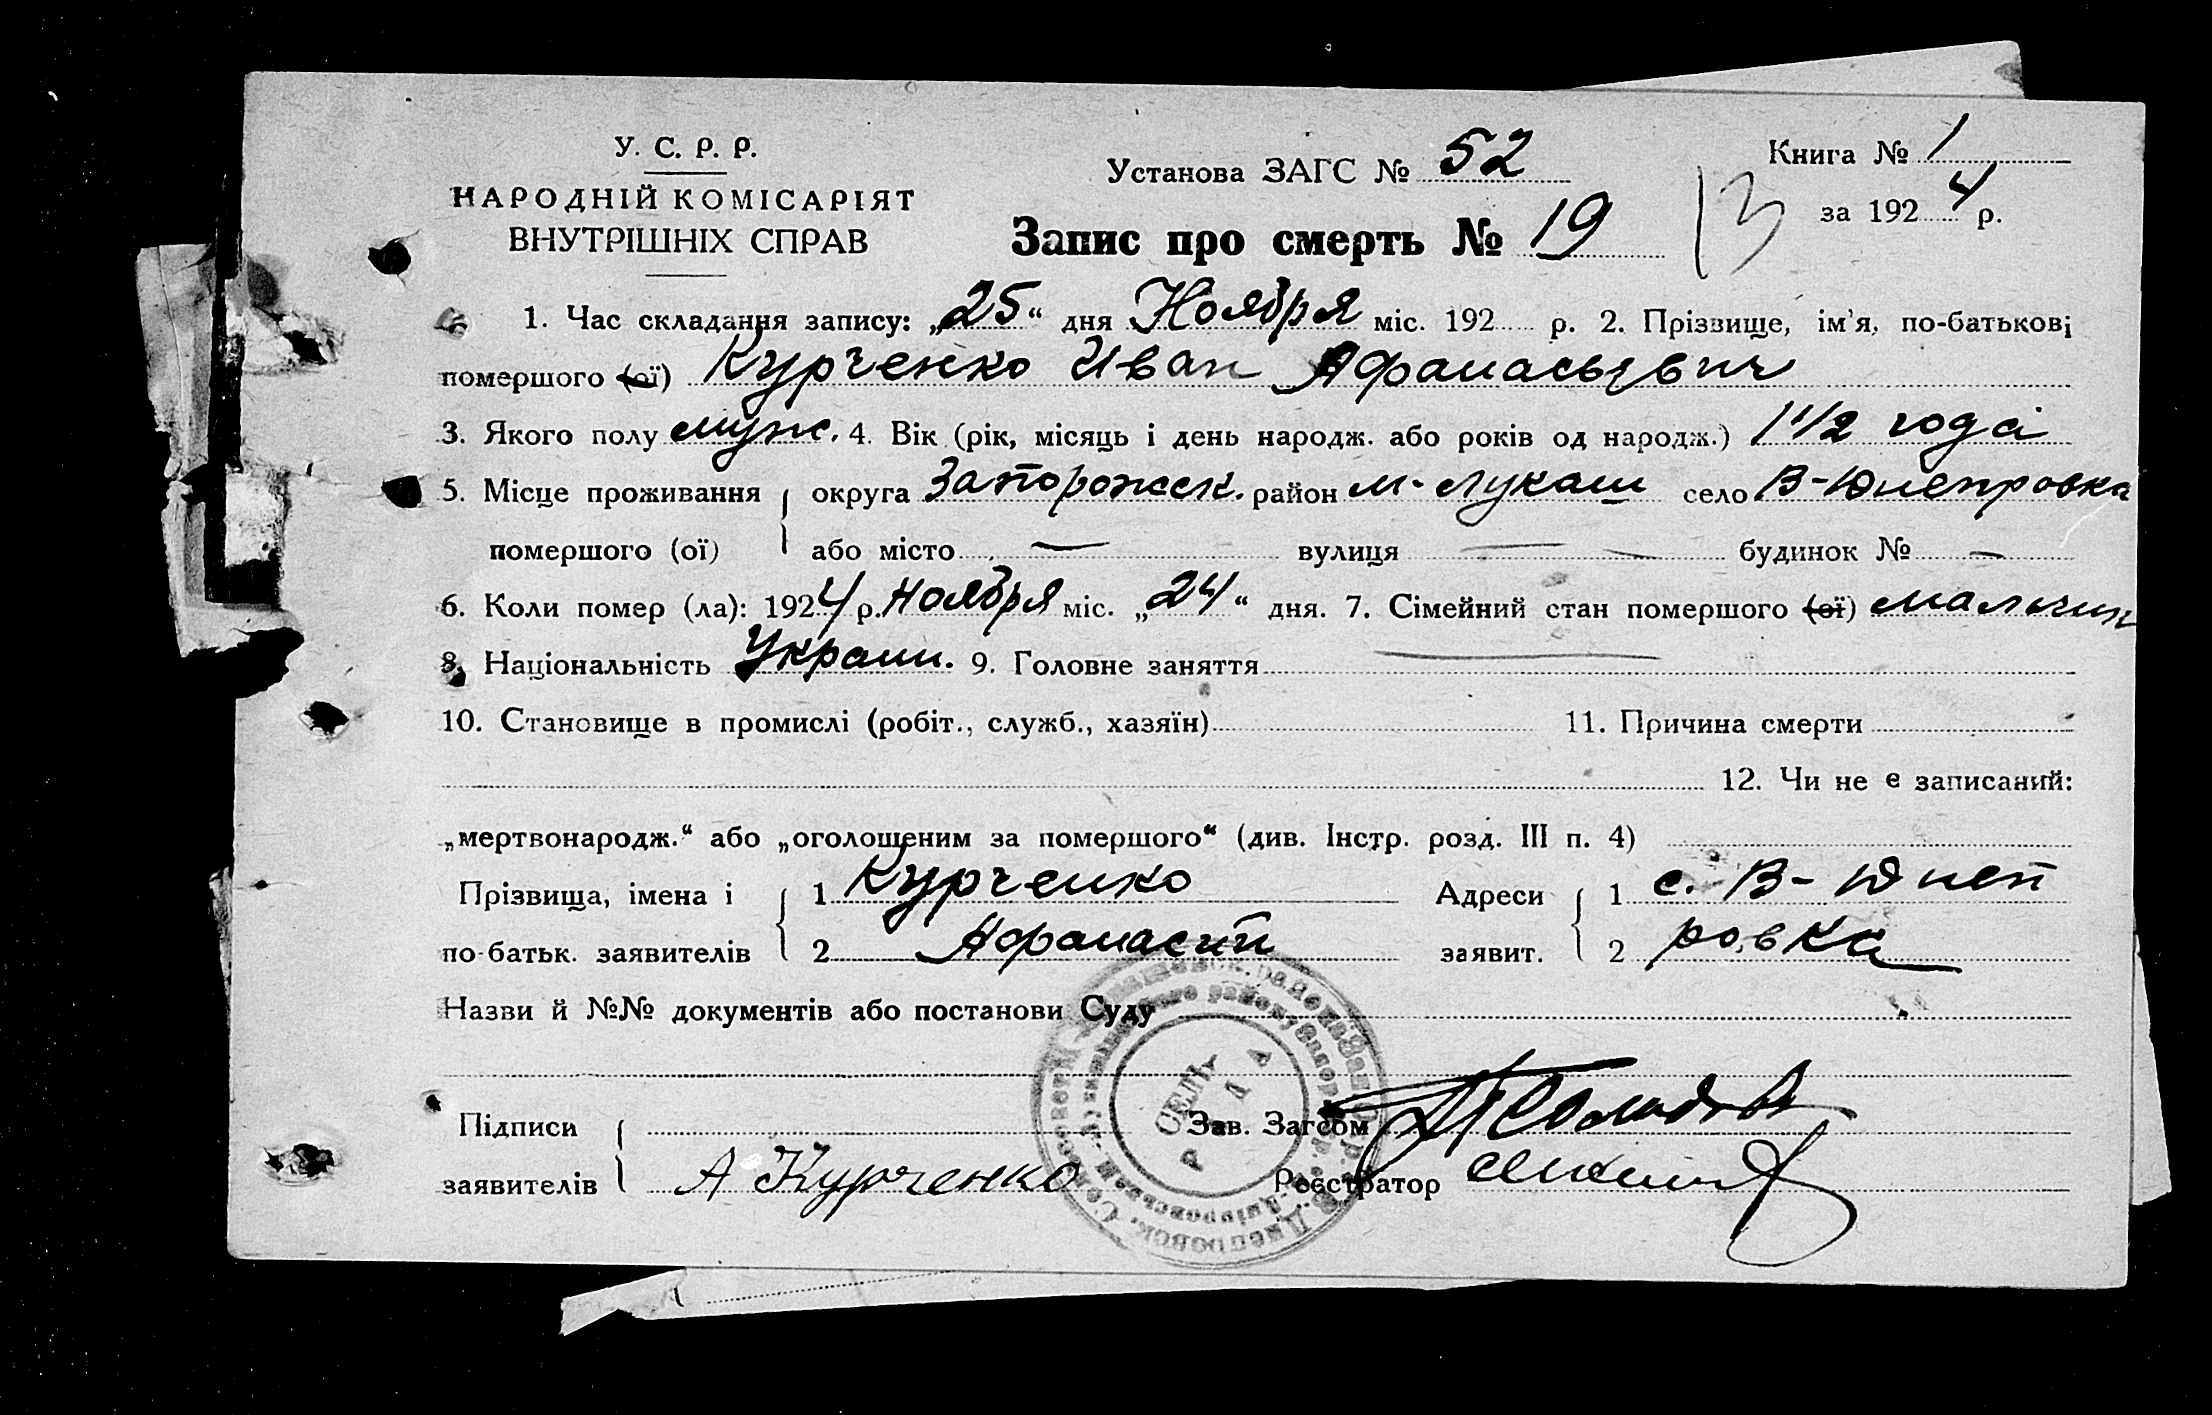 У. С. Р. Р.
НАРОДНІЙ КОМІСАРІЯТ
ВНУТРІШНІХ СПРАВ
Установа ЗАГС № 52
Книга № 1
за 1924 р.
Запис про смерть № 19
13
1. Час складання запису: „25“ дня Ноября міс. 192 р. 2. Прізвище, ім'я, по-батькові
помершого (ої) Курченко Иван Афанасьевич
3. Якого полу муж. 4. Вік (рік, місяць і день народж. або років од народж.) 1 1/2 года
5. Місце проживання округа Запорожск. район М-Лукаш село В-Днепровка
помершого (ої) або місто — вулиця — будинок № —
6. Коли помер (ла): 1924 р. Ноября міс. „24“ дня. 7. Сімейний стан помершого (ої) мальчик
8. Національність Украин. 9. Головне заняття —
10. Становище в промислі (робіт., служб., хазяїн) 11. Причина смерти
12. Чи не є записаний:
„мертвонародж.“ або „оголошеним за помершого“ (див. Інстр. розд. III п. 4)
Прізвища, імена і 1 Курченко Адреси 1 с. В-Днеп
по-батьк. заявителів 2 Афанасий заявит. 2 ровка
Назви й №№ документів або постанови Суду
Підписи Зав. Загсом
заявителів А Курченко Реєстратор
СЕЛЬ
РАДА